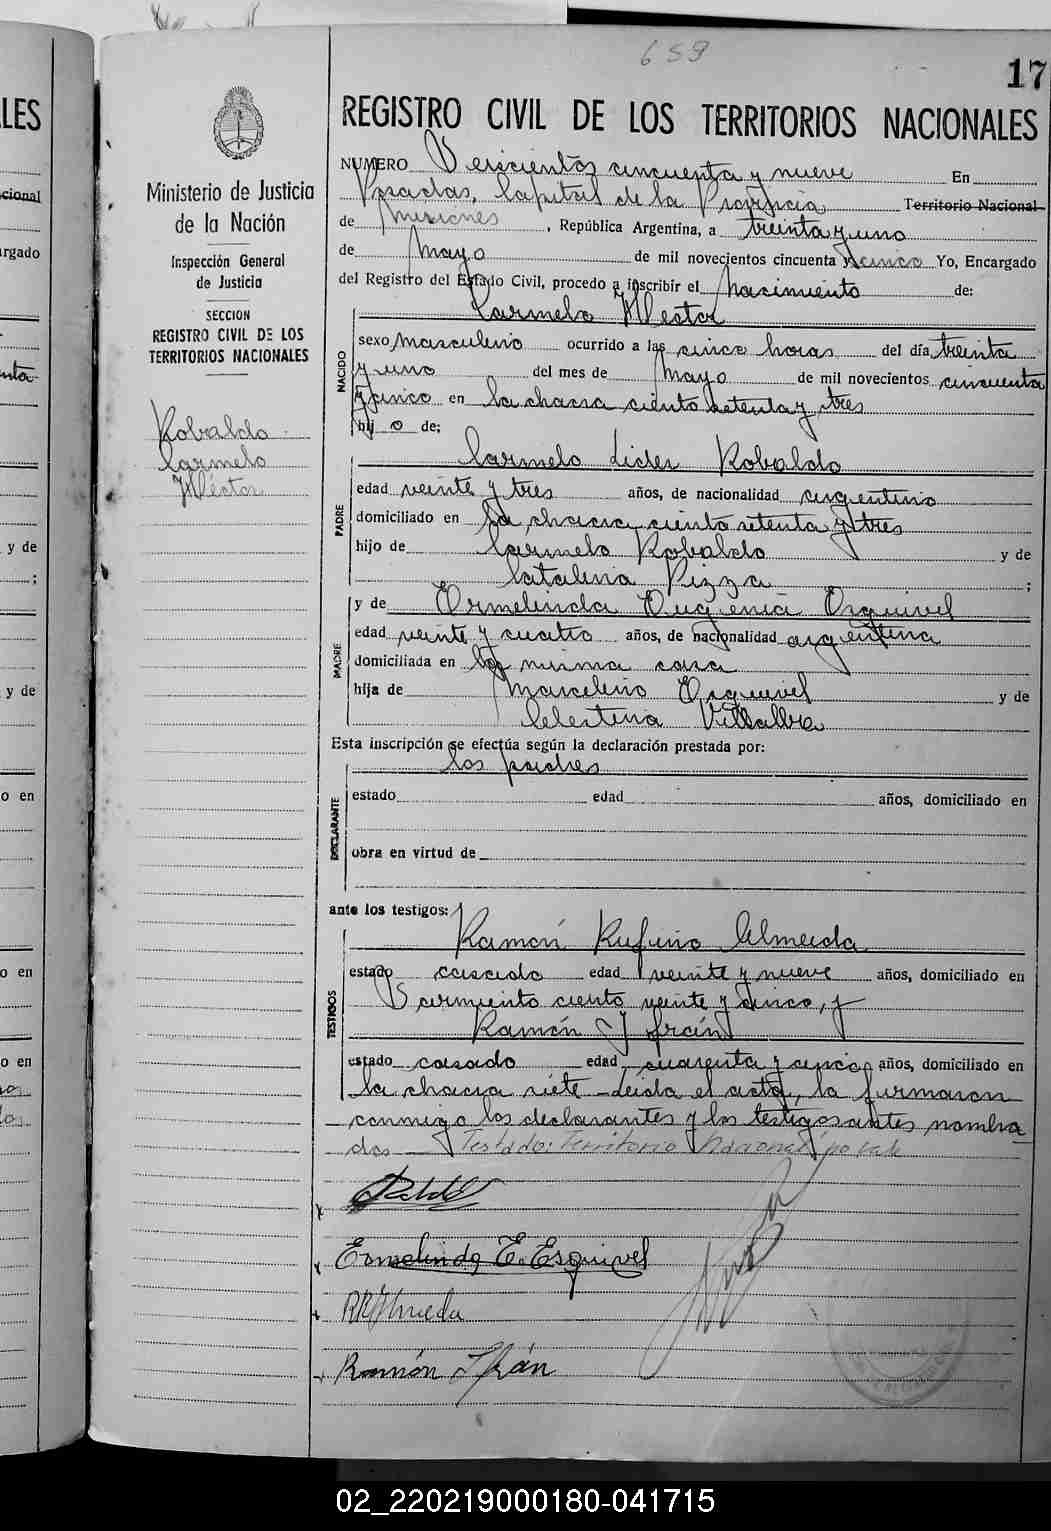 659
17
LES
REGISTRO CIVIL DE LOS TERRITORIOS NACIONALES
Ministerio de Justicia
de la Nación
Inspección General
de Justicia
SECCION
REGISTRO CIVIL DE LOS
TERRITORIOS NACIONALES
Robaldo
Carmelo
Héctor
NUMERO Seiscientos cincuenta y nueve En
Posadas, Capital de la Provincia Territorio Nacional
de Misiones, República Argentina, a treinta y uno
de Mayo de mil novecientos cincuenta y cinco Yo, Encargado
del Registro del Estado Civil, procedo a inscribir el nacimiento de:
Carmelo Héctor
NACIDO
sexo masculino ocurrido a las cinco horas del día treinta
y uno del mes de Mayo de mil novecientos cincuenta
y cinco en la chacra ciento setenta y tres
hijo de;
Carmelo Lider Robaldo
PADRE
edad veinte y tres años, de nacionalidad argentino
domiciliado en la chacra ciento setenta y tres
hijo de Carmelo Robaldo y de
Catalina Pizza ;
y de Ermelinda Eugenia Esquivel
MADRE
edad veinte y cuatro años, de nacionalidad argentina
domiciliada en la misma casa
hija de Marcelino Esquivel y de
Celestina Villalba
Esta inscripción se efectúa según la declaración prestada por:
los padres
DECLARANTE
estado edad años, domiciliado en
obra en virtud de
ante los testigos:
Ramón Rufino Almeida
TESTIGOS
estado casado edad veinte y nueve años, domiciliado en
Sarmiento ciento veinte y cinco, y
Ramón Ifrán
estado casado edad cuarenta y cinco años, domiciliado en
la chacra siete - Leida el acta, la firmaron
conmigo los declarantes y los testigos antes nombra
dos - Testado: Territorio Nacional no vale
Ermelinda E. Esquivel
RRAlmeida
Ramón Ifrán
02_220219000180-041715